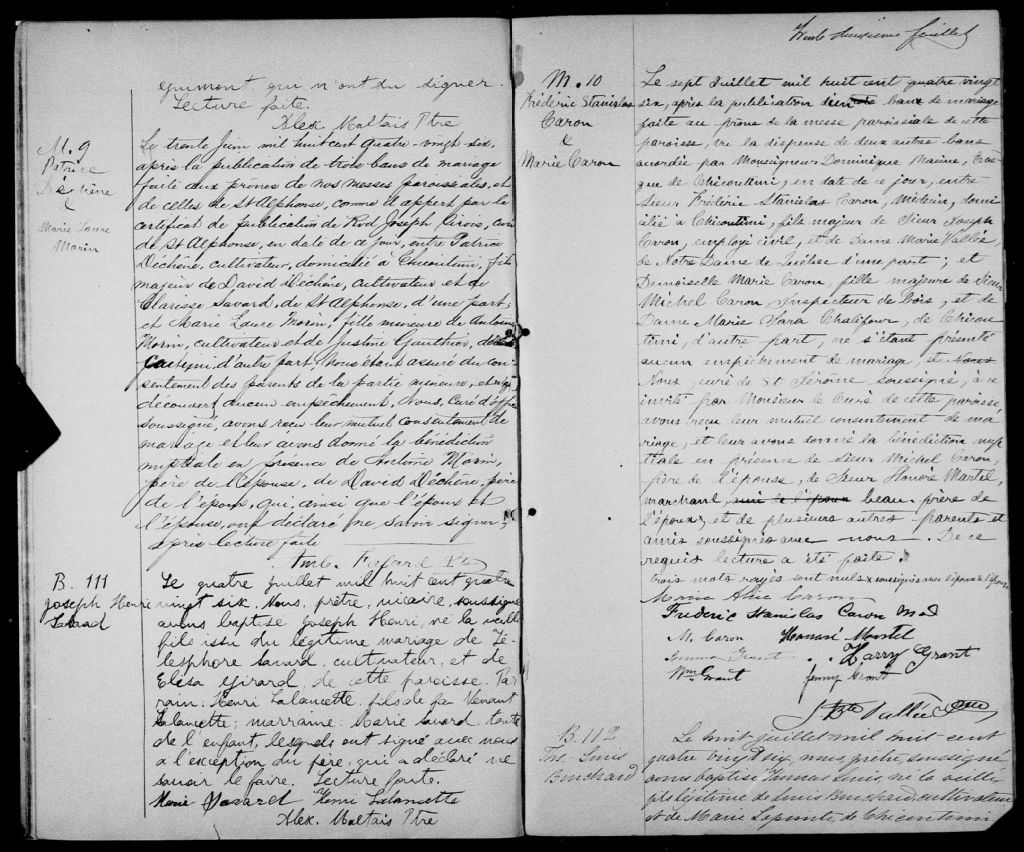 guimont, qui n'ont du signer.
Lecture faite.
Alex. Maltais Ptre
M. 9
Patrice
Dechêne
&
Marie Laure
Morin
Le trente Juin mil huit cent quatre-vingt six,
après la publication de trois bans de mariage
faite aux prones de nos messes paroissiales, et
de celles de St Alphonse, comme il appert par le
certificat de publication de Rvd Joseph Sirois, curé
de St Alphonse, en date de ce jour, entre Patrice
Déchêne, cultivateur, domicilié à Chicoutimi, fils
majeur de David Déchêne, cultivateur et de
Clarisse Savard, de St Alphonse, d'une part;
et Marie Laure Morin, fille mineure de Antoine
Morin, cultivateur et de Justine Gauthier,
d'autre part; Nous étant assuré du con-
sentement des parents de la partie mineure, et
découvert aucun empêchement, Nous, Curé d'office
soussigné, avons reçu leur mutuel consentement de
mariage et leur avons donné la bénédiction
nuptiale en présence de Antoine Morin,
père de l'épouse, de David Déchêne, père
de l'époux, qui, ainsi que l'époux et
l'épouse, ont déclaré ne savoir signer,
après lecture faite
Amb. Fafard Ptre
B. 111
Joseph Henri
Savard
Le quatre juillet mil huit cent quatre
vingt six. Nous, prêtre, vicaire, soussigné
avons baptisé Joseph Henri, né la veille
fils issu du légitime mariage de Té-
lesphore Savard, cultivateur, et de
Elisa Girard, de cette paroisse. Par-
rain: Henri Lalancette, fils de fa Venant
Lalancette; marraine: Marie Savard, tante
de l'enfant, lesquels ont signé avec nous
à l'exception du père, qui a déclaré ne
savoir le faire. Lecture faite.
Marie Savard Henri Lalancette
Alex. Maltais Ptre
Trente deuxième feuillet
M. 10
Frédéric Stanislas
Caron
&
Marie Caron
Le sept Juillet mil huit cent quatre vingt
six, après la publication bans de mariage
faite au prône de la messe paroissiale de cette
paroisse, vu la dispense de deux autres bans
accordée par Monseigneur Dominique Racine, Evê-
que de Chicoutimi, en date de ce jour, entre
Sieur Frédéric Stanislas Caron, Médecin, domi
cilié à Chicoutimi, fils majeur de Sieur Joseph
Caron, employé civil, et de Dame Marie Vallée,
de Notre Dame de Québec d'une part; et
Demoiselle Marie Caron, fille majeure de Sieur
Michel Caron, Inspecteur de bois, et de
Dame Marie Sara Chalifour, de Chicou
timi, d'autre part, ne s'étant présenté
aucun empêchement de mariage, et Nous
Nous, curé de St Jérôme soussigné, à ce
invité par Monsieur le Curé de cette paroisse,
avons reçu leur mutuel consentement de ma
riage, et leur avons donné la bénédiction nup
tiale en présence de Sieur Michel Caron,
père de l'épouse, de Sieur Honoré Martel,
marchand, ami de l'époux beau-père de
l'époux, et de plusieurs autres parents et
amis soussignés avec nous. De ce
requis lecture a été faite.
Trois mots rayés sont nuls x soussignés avec l'époux & l'épouse
Marie Alice Caron
Frederic Stanislas Caron M.D
M. Caron Honoré Martel
Emma Grant Harry Grant
Wm Grant Jenny Grant
J Bte Vallée Ptre
B. 112
Ths. Louis
Bouchard
Le huit juillet mil huit cent
quatre vingt six, nous, prêtre, soussigné
avons baptisé Thomas Louis, né la veille
fils légitime de Louis Bouchard, cultivateur
et de Marie Lapointe de Chicoutimi